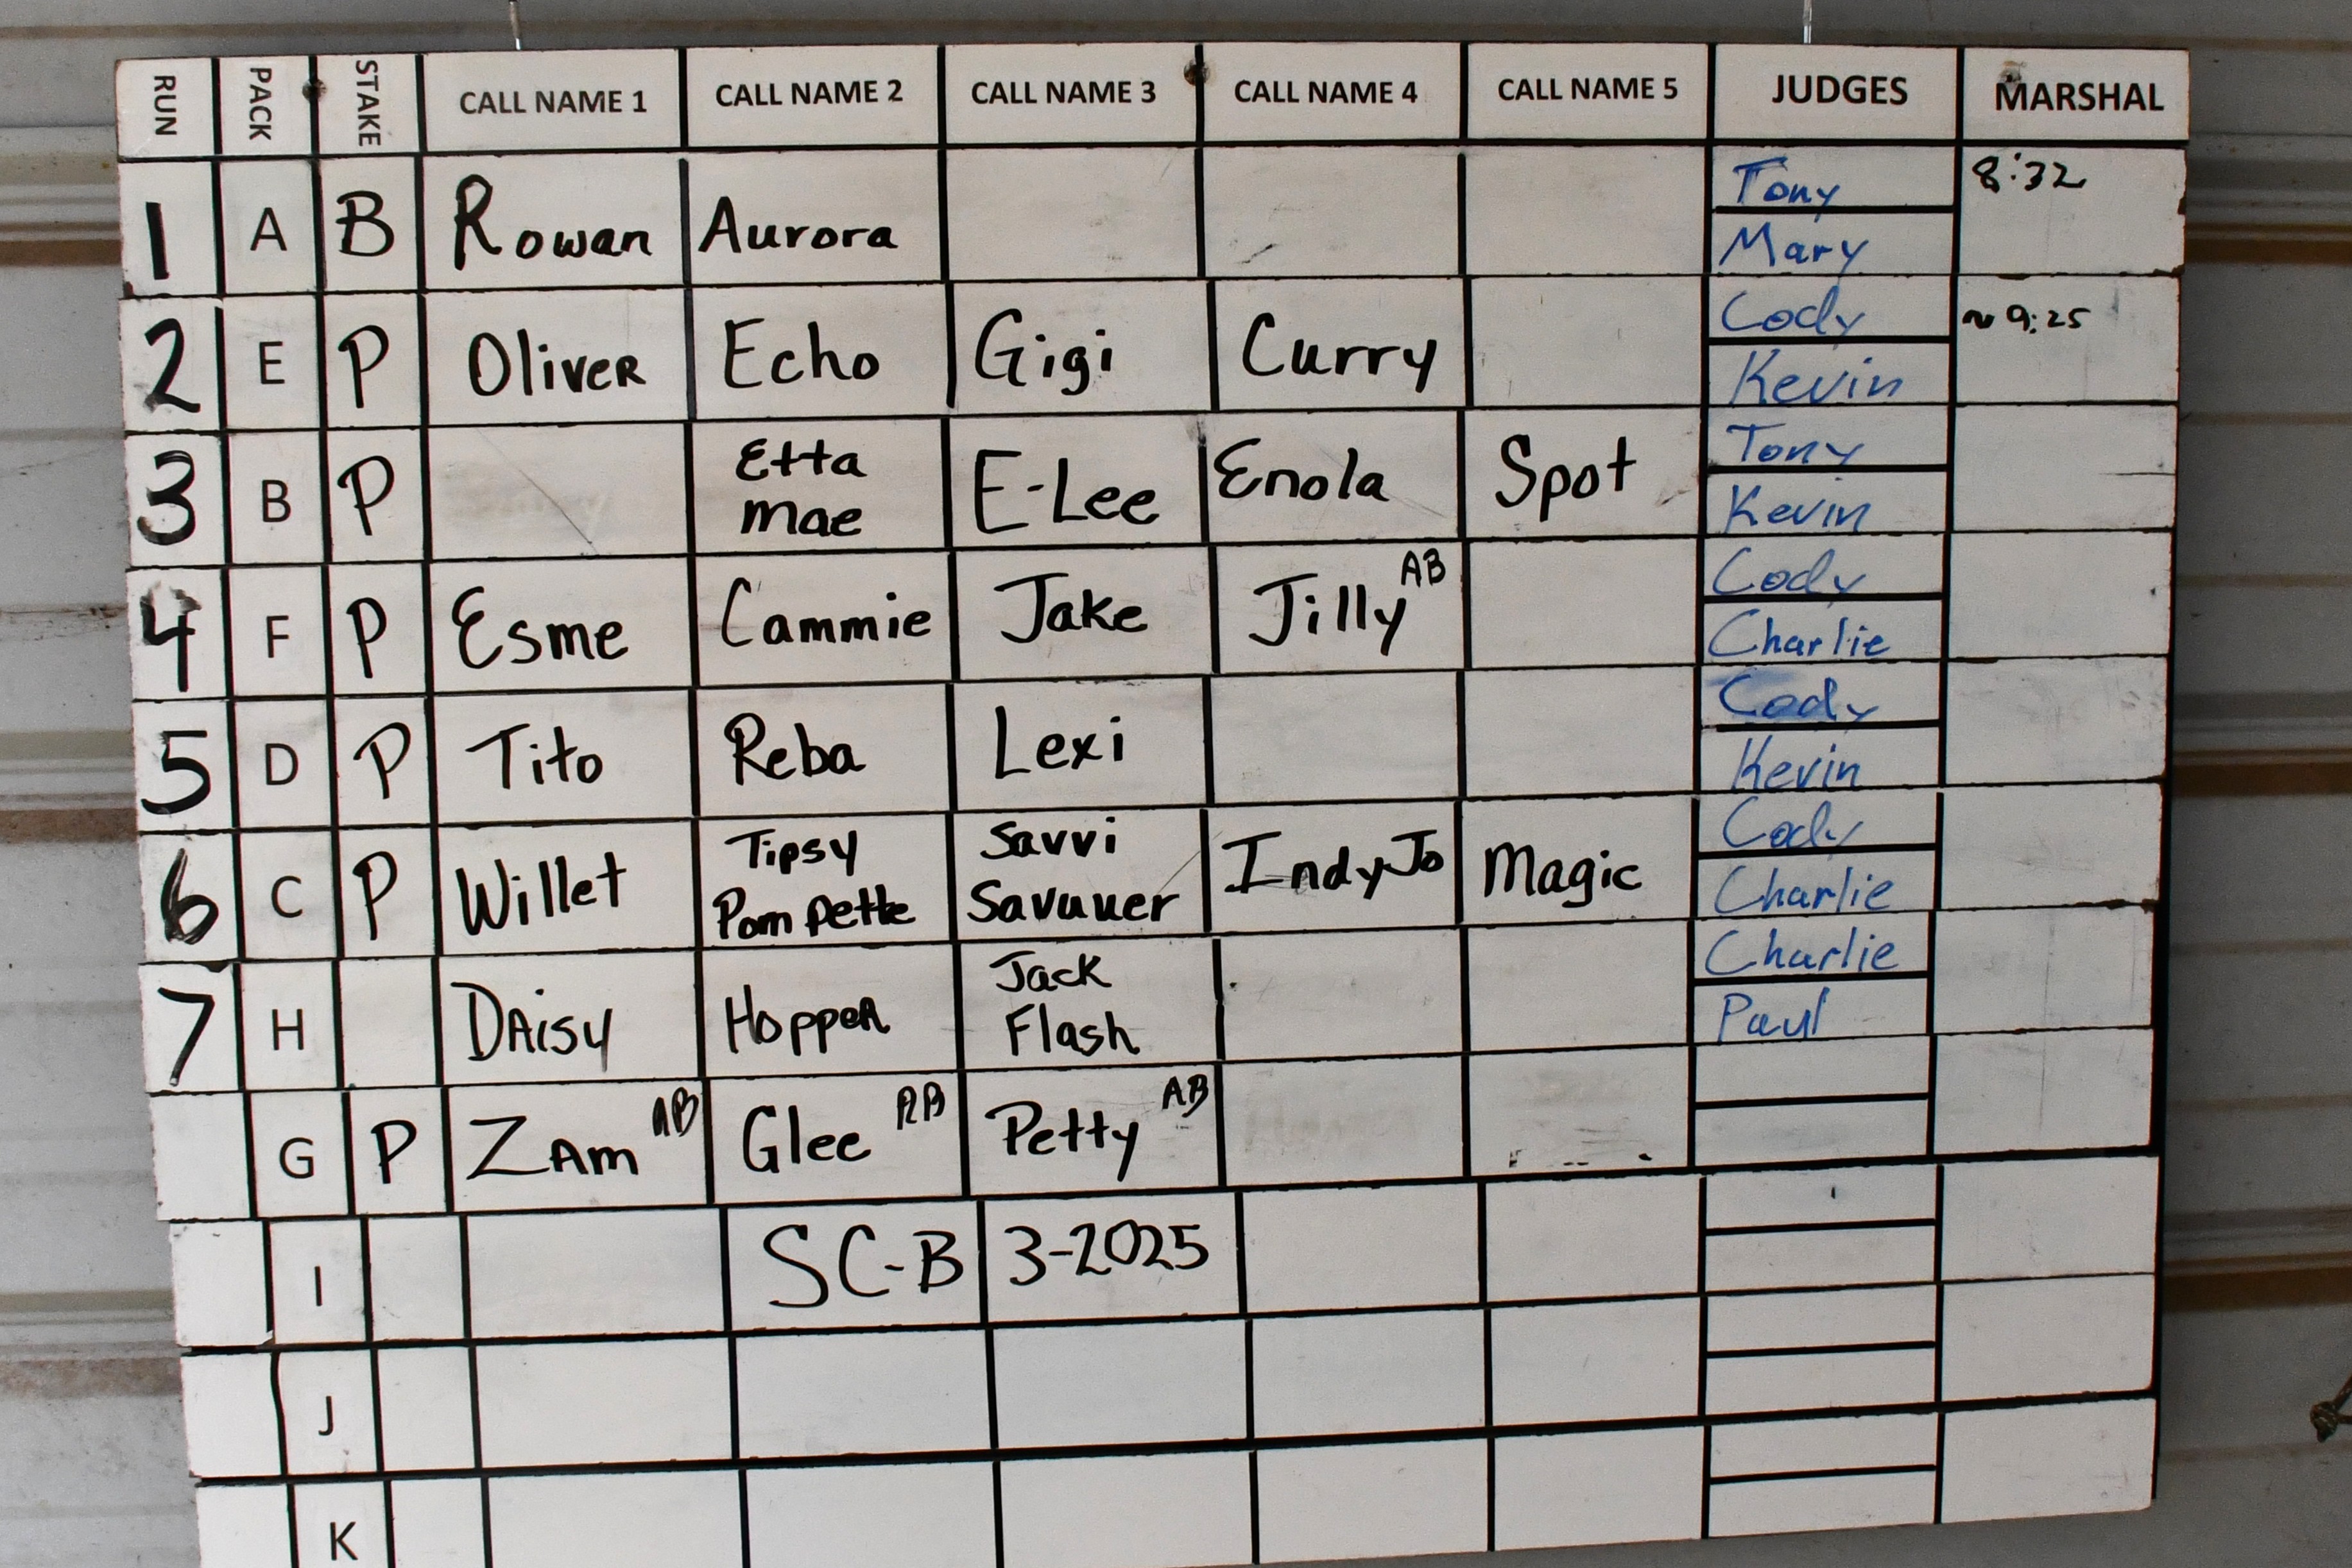 RUN PACK STAKE CALL NAME 1 CALL NAME 2 CALL NAME 3 CALL NAME 4 CALL NAME 5 JUDGES MARSHAL
1 A B Rowan Aurora Tony 8:32
Mary
2 E P Oliver Echo Gigi Curry Cody ~9:25
Kevin
3 B P Etta E-Lee Enola Spot Tony
Mae Kevin
4 F P Esme Cammie Jake Jilly AB Cody
Charlie
5 D P Tito Reba Lexi Cody
Kevin
6 C P Willet Tipsy Savvi Indy Jo Magic Cody
Pom Pette Savuuer Charlie
7 H Daisy Hopper Jack Charlie
Flash Paul
G P Zam AB Glee AB Petty AB
I SC-B 3-2025
J
K